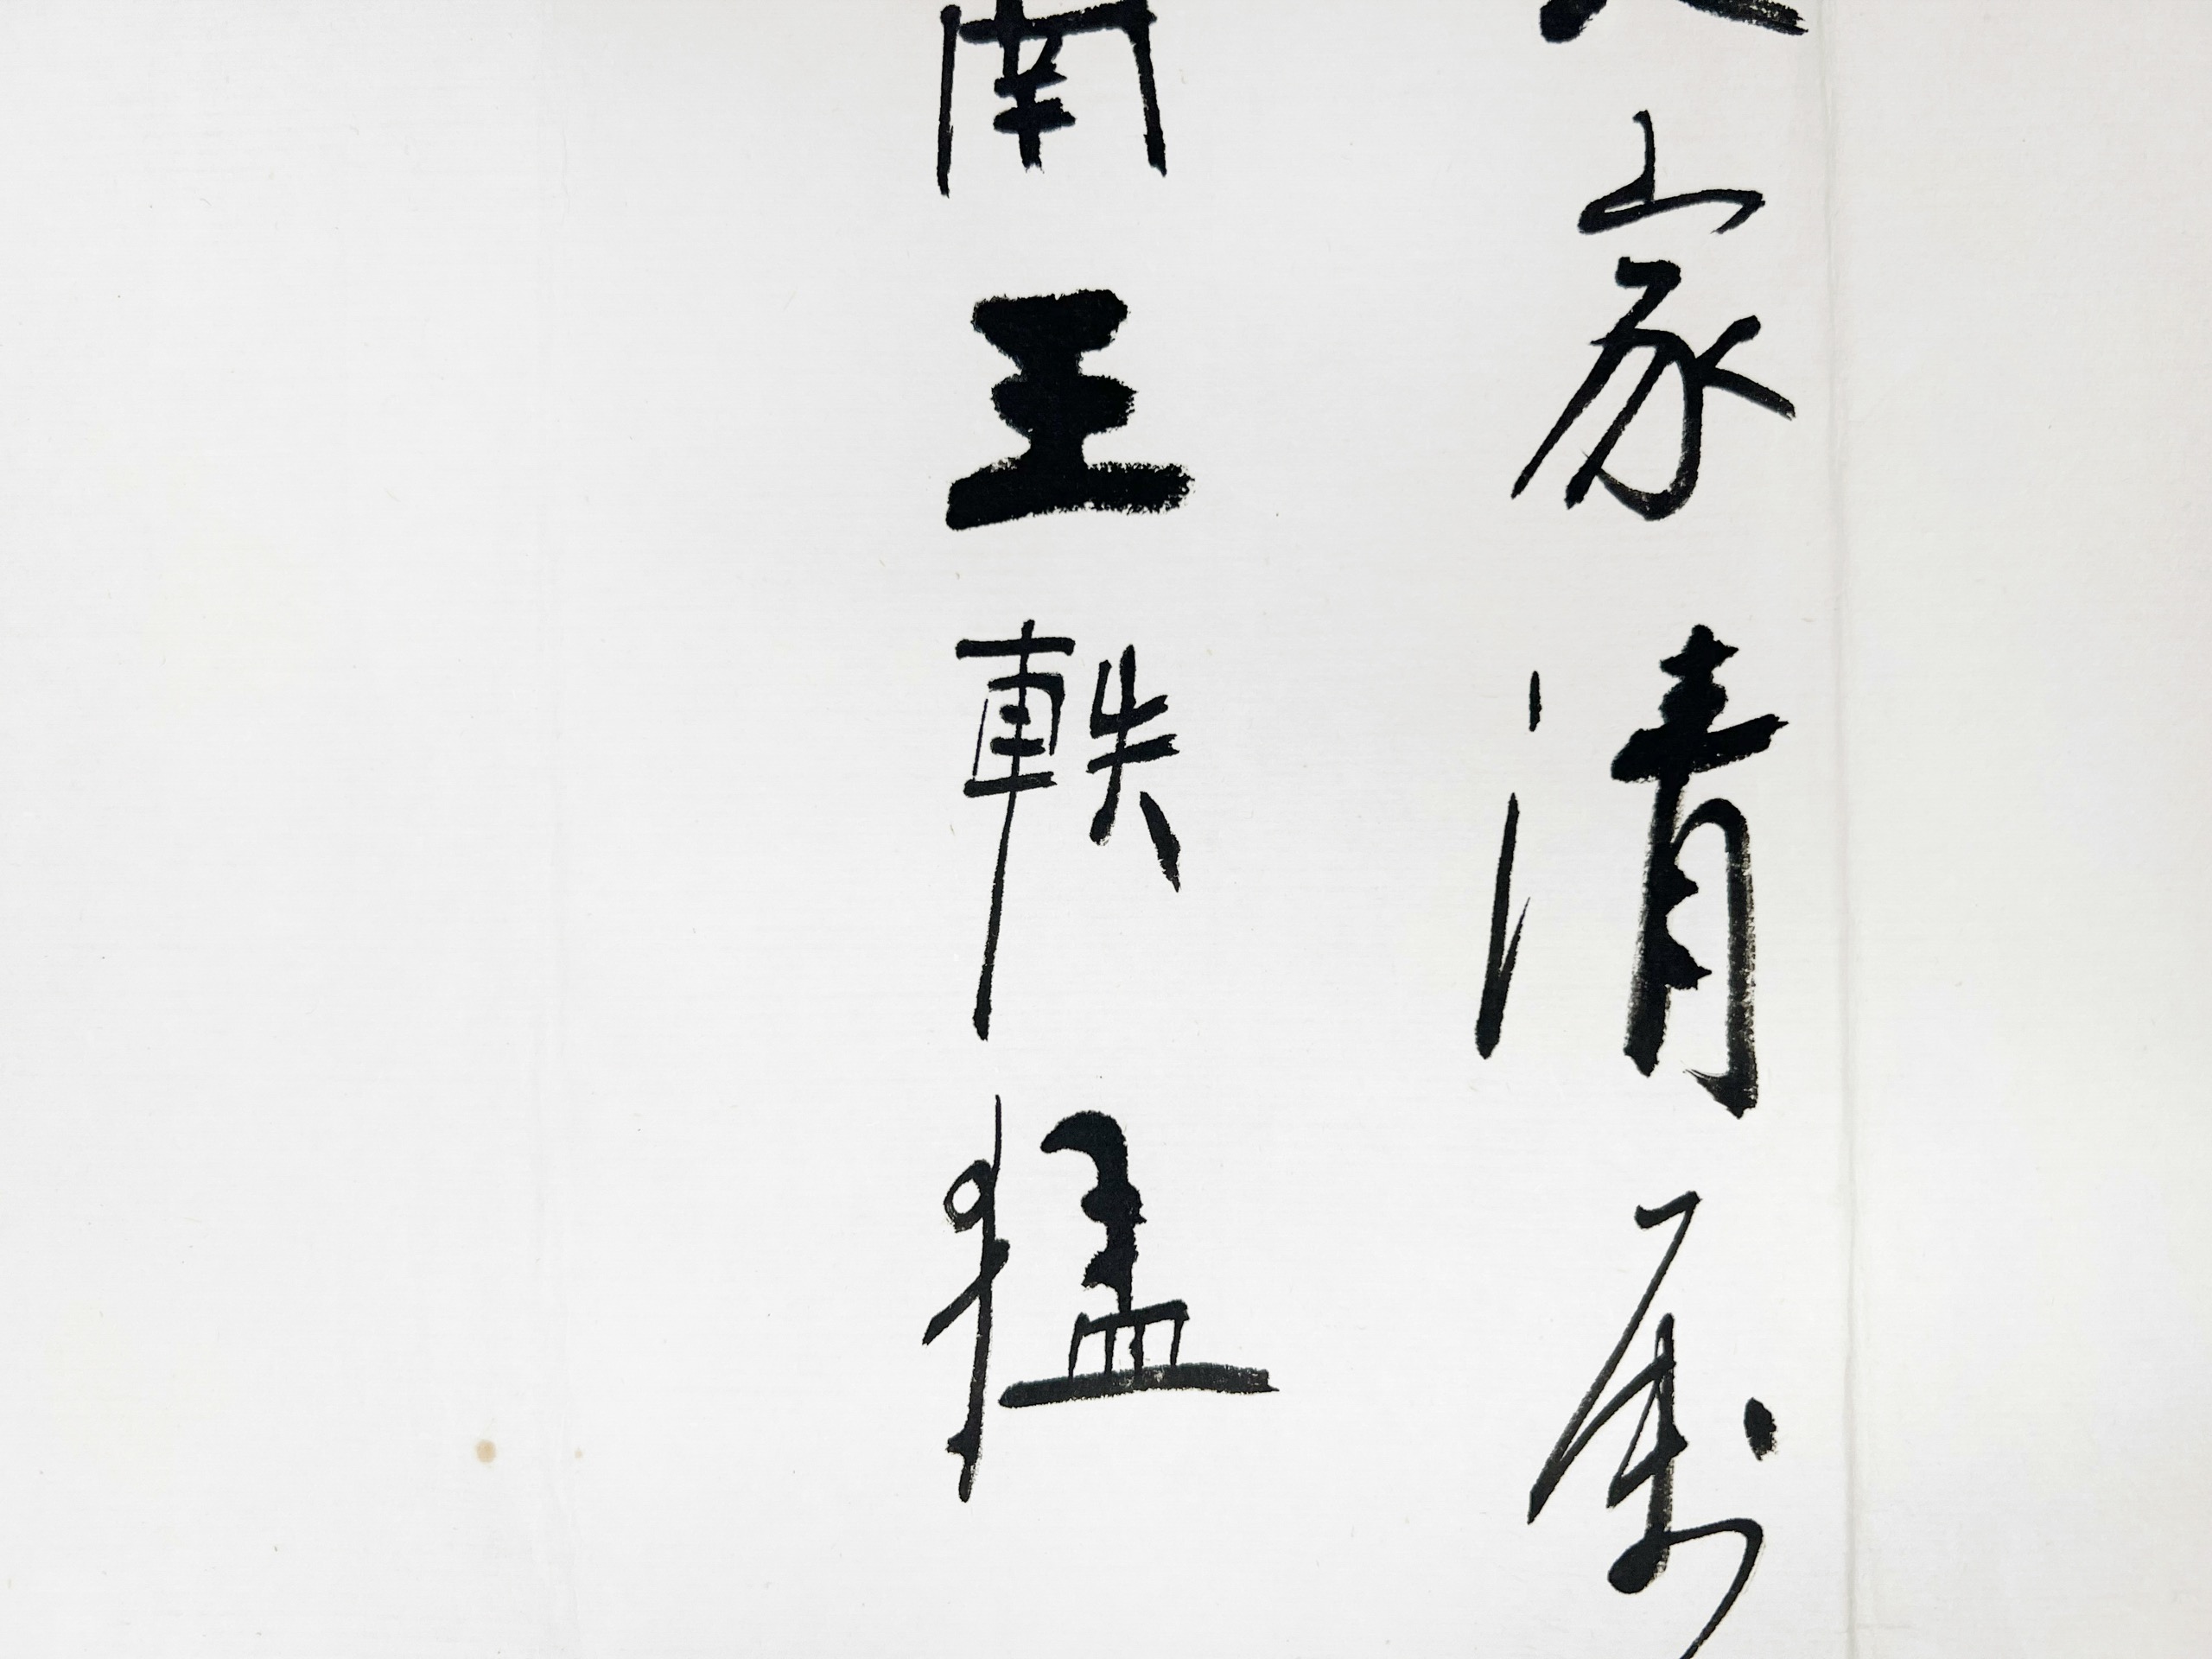 家清屬
南王軼猛